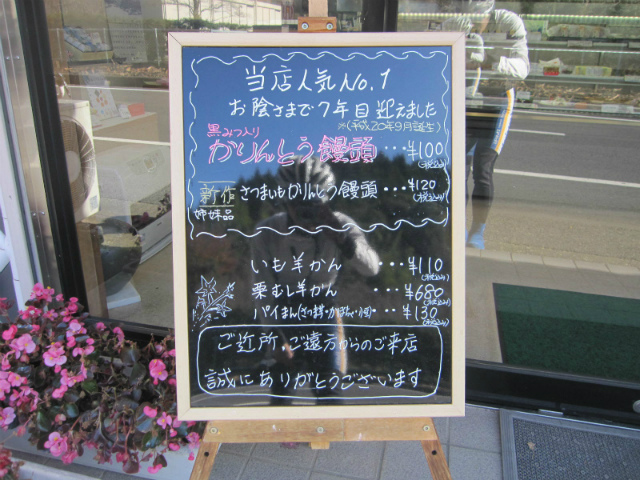 当店人気No.1
お陰さまで7年目迎えました
※(平成20年9月誕生)
黒みつ入り
かりんとう饅頭…¥100
(税込み)
新作 さつまいもかりんとう饅頭…¥120
姉妹品 (税込み)
いも羊かん …¥110
(税込み)
栗むし羊かん …¥680
(税込み)
パイまん(さつま芋・かぼちゃ・小豆)…¥130
(税込み)
ご近所、ご遠方からのご来店
誠にありがとうございます